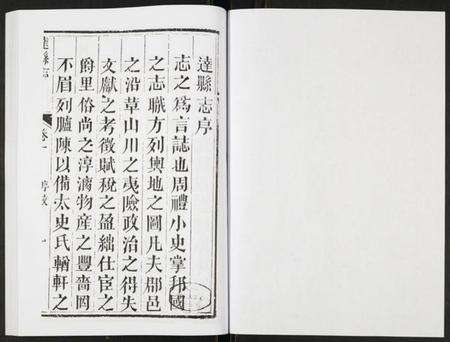 達縣志序
志之爲言誌也周禮小史掌邦國
之志職方列輿地之圖凡夫郡邑
之沿革山川之夷險政治之得失
文獻之考徵賦稅之盈絀仕宦之
爵里俗尚之淳漓物產之豐嗇罔
不眉列臚陳以備太史氏輶軒之
達縣志 卷一 序文 一